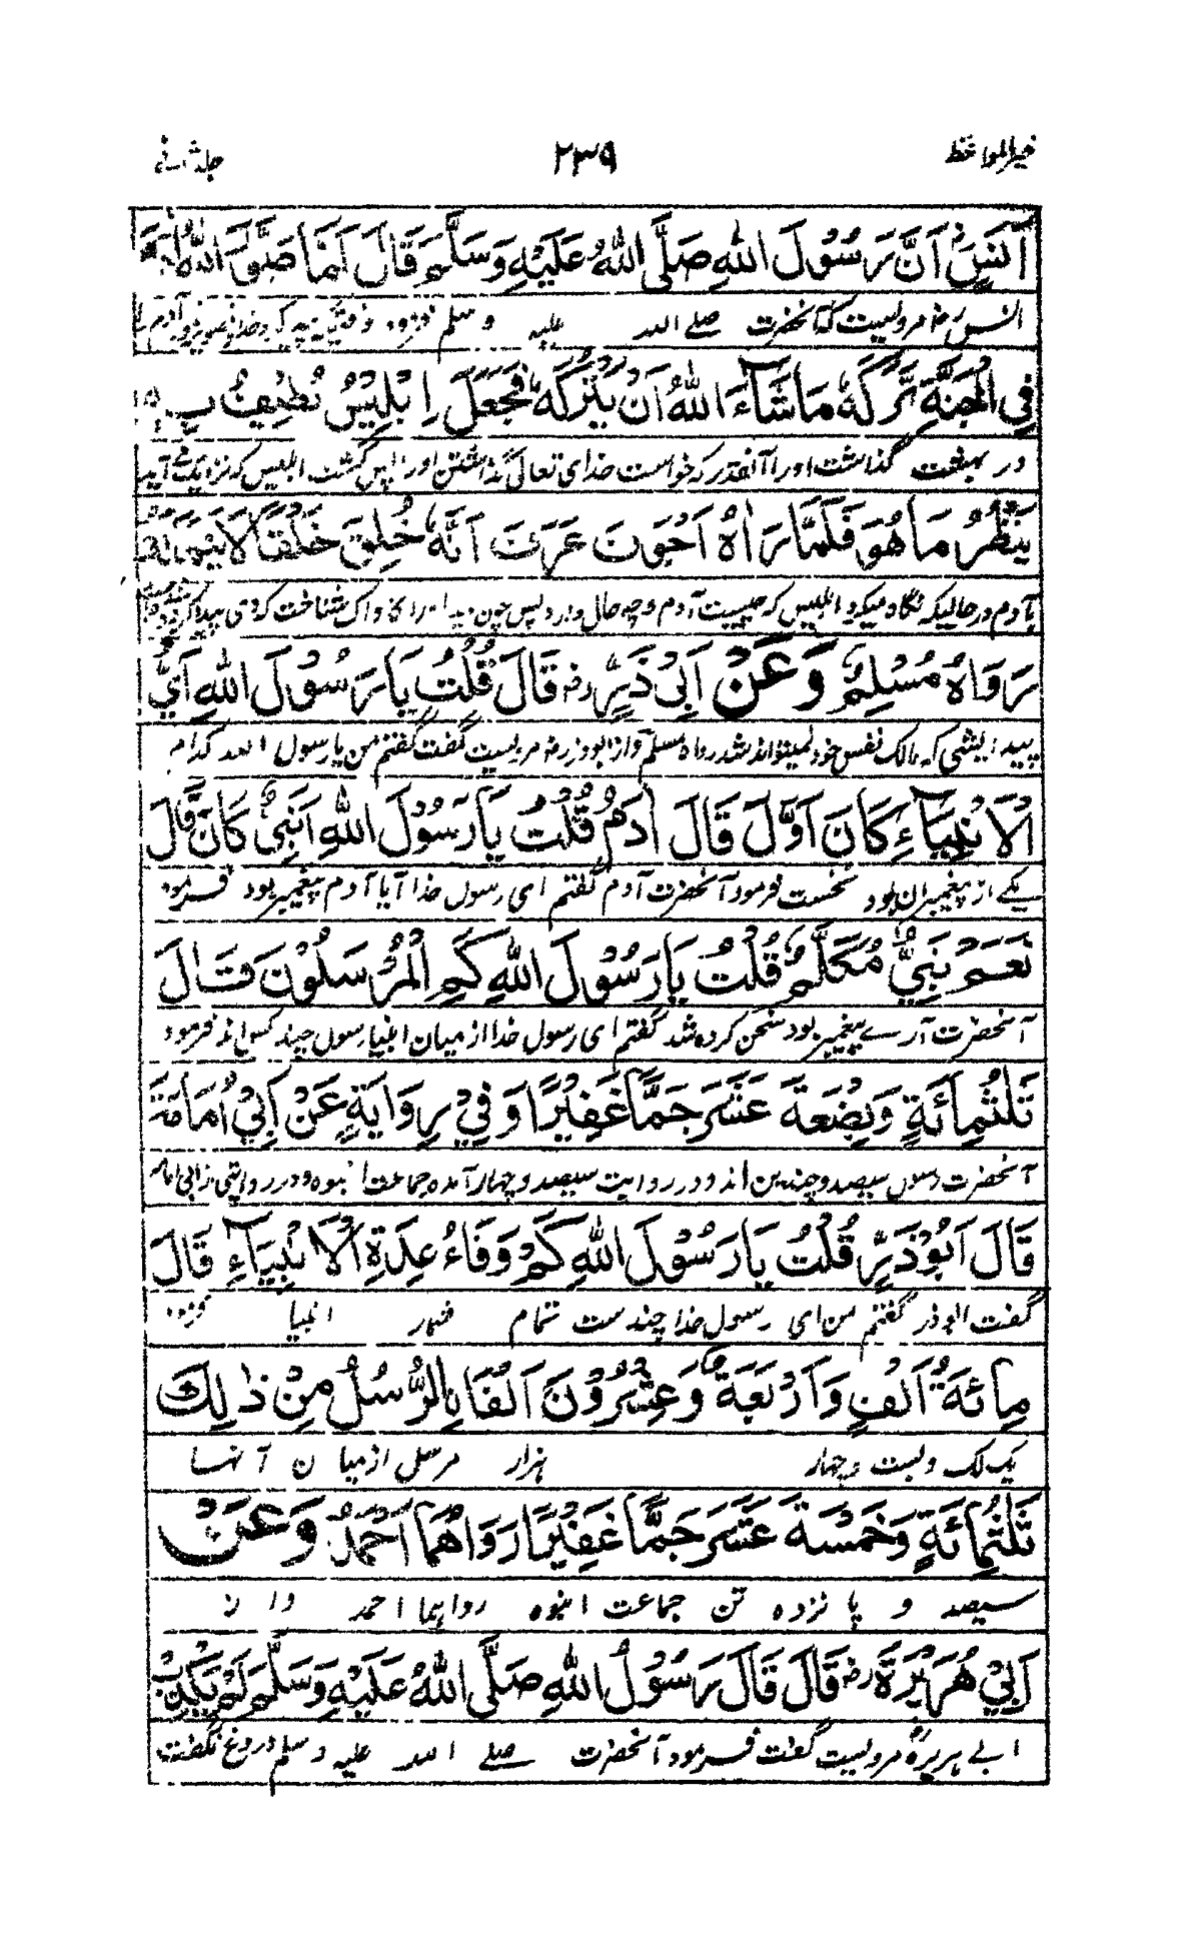 خیر المواعظ ۲۳۹ جلد ثانی
اَنَسٍ رض اَنَّ رَسُوْلَ اللهِ صَلَّى اللهُ عَلَيْهِ وَسَلَّمَ قَالَ لَمَّا صَوَّرَ اللهُ اٰدَمَ
انس رض مرویست که آنحضرت صلے الله علیه وسلم فرمود وقتیکه خدای آدم را
فِي الْجَنَّةِ تَرَكَهٗ مَا شَاءَ اللهُ اَنْ يَتْرُكَهٗ فَجَعَلَ اِبْلِيْسُ يُطِيْفُ بِهٖ
در بهشت گذاشت او را آنقدر که خواست خدای تعالی گذاشتن او را پس گشت ابلیس که نزدیک می آید
يَنْظُرُ مَا هُوَ فَلَمَّا رَاٰهُ اَجْوَفَ عَرَفَ اَنَّهٗ خُلِقَ خَلْقًا لَا يَتَمَالَكُ
بآدم در حالیکه نگاه میکرد ابلیس که چیست آدم و چه حال دارد پس چون دید او را کاواک شناخت که وی پیدا کرده
رَوَاهُ مُسْلِمٌ وَعَنْ اَبِيْ ذَرٍّ رض قَالَ قُلْتُ يَا رَسُوْلَ اللهِ اَيُّ
پیدایشی که مالک نفس خود نمیتواند شد رواه مسلم و از ابوذر رض مرویست گفت گفتم من یا رسول الله کدام
الْاَنْبِيَاءِ كَانَ اَوَّلَ قَالَ اٰدَمُ قُلْتُ يَا رَسُوْلَ اللهِ اَنَبِيٌّ كَانَ قَالَ
یکے از پیغمبران بود نخست فرمود آنحضرت آدم گفتم ای رسول خدا آیا آدم پیغمبر بود فرمود
نَعَمْ نَبِيٌّ مُكَلَّمٌ قُلْتُ يَا رَسُوْلَ اللهِ كَمِ الْمُرْسَلُوْنَ قَالَ
آنحضرت آرے پیغمبر بود سخن کرده شد گفتم ای رسول خدا از میان انبیا رسول چند کس اند فرمود
ثَلٰثُمِائَةٍ وَبِضْعَةَ عَشَرَ جَمًّا غَفِيْرًا وَفِيْ رِوَايَةٍ عَنْ اَبِيْ اُمَامَةَ
آنحضرت رسول سیصد و چندین اند و در روایت سیصد و چهار آمده جماعت انبوه و در روایتی از ابی امامه
قَالَ اَبُوْ ذَرٍّ قُلْتُ يَا رَسُوْلَ اللهِ كَمْ وَفَاءُ عِدَّةِ الْاَنْبِيَاءِ قَالَ
گفت ابوذر گفتم من ای رسول خدا چندست تمام شمار انبیا فرمود
مِائَةُ اَلْفٍ وَاَرْبَعَةٌ وَّعِشْرُوْنَ اَلْفًا اَلرُّسُلُ مِنْ ذٰلِكَ
یک لک و بست و چهار هزار مرسل از میان آنها
ثَلٰثُمِائَةٍ وَخَمْسَةَ عَشَرَ جَمًّا غَفِيْرًا رَوَاهُمَا اَحْمَدُ وَعَنْ
سیصد و پانزده تن جماعت انبوه رواهما احمد و از
اَبِيْ هُرَيْرَةَ رض قَالَ قَالَ رَسُوْلُ اللهِ صَلَّى اللهُ عَلَيْهِ وَسَلَّمَ لَمْ يَكْذِبْ
ابی هریرهؓ مرویست گفت فرمود آنحضرت صلے الله علیه وسلم دروغ نگفت